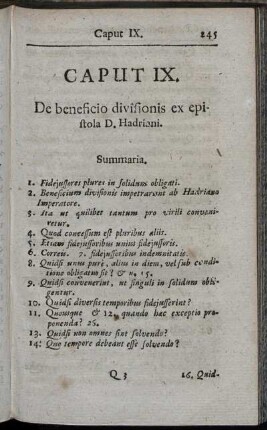 Caput IX. 245
CAPUT IX.
De beneficio divisionis ex epi-
stola D. Hadriani.
Summaria.
1. Fidejussores plures in solidum obligati.
2. Beneficium divisionis impetrarunt ab Hadriano
Imperatore.
3. Ita ut quilibet tantum pro virili conveni-
retur.
4. Quod concessum est pluribus aliis.
5. Etiam fidejussoribus unius fidejussoris.
6. Correis. 7. fidejussoribus indemnitatis.
8. Quidsi unus purè, alius in diem, vel sub condi-
tione obligatus sit? & n. 15.
9. Quidsi convenerint, ut singuli in solidum obli-
gentur.
10. Quidsi diversis temporibus fidejusserint?
11. Quousque & 12. quando hac exceptio pro-
ponenda? 26.
13. Quidsi non omnes sint solvendo?
14. Quo tempore debeant esse solvendo?
Q 3 16. Quid-